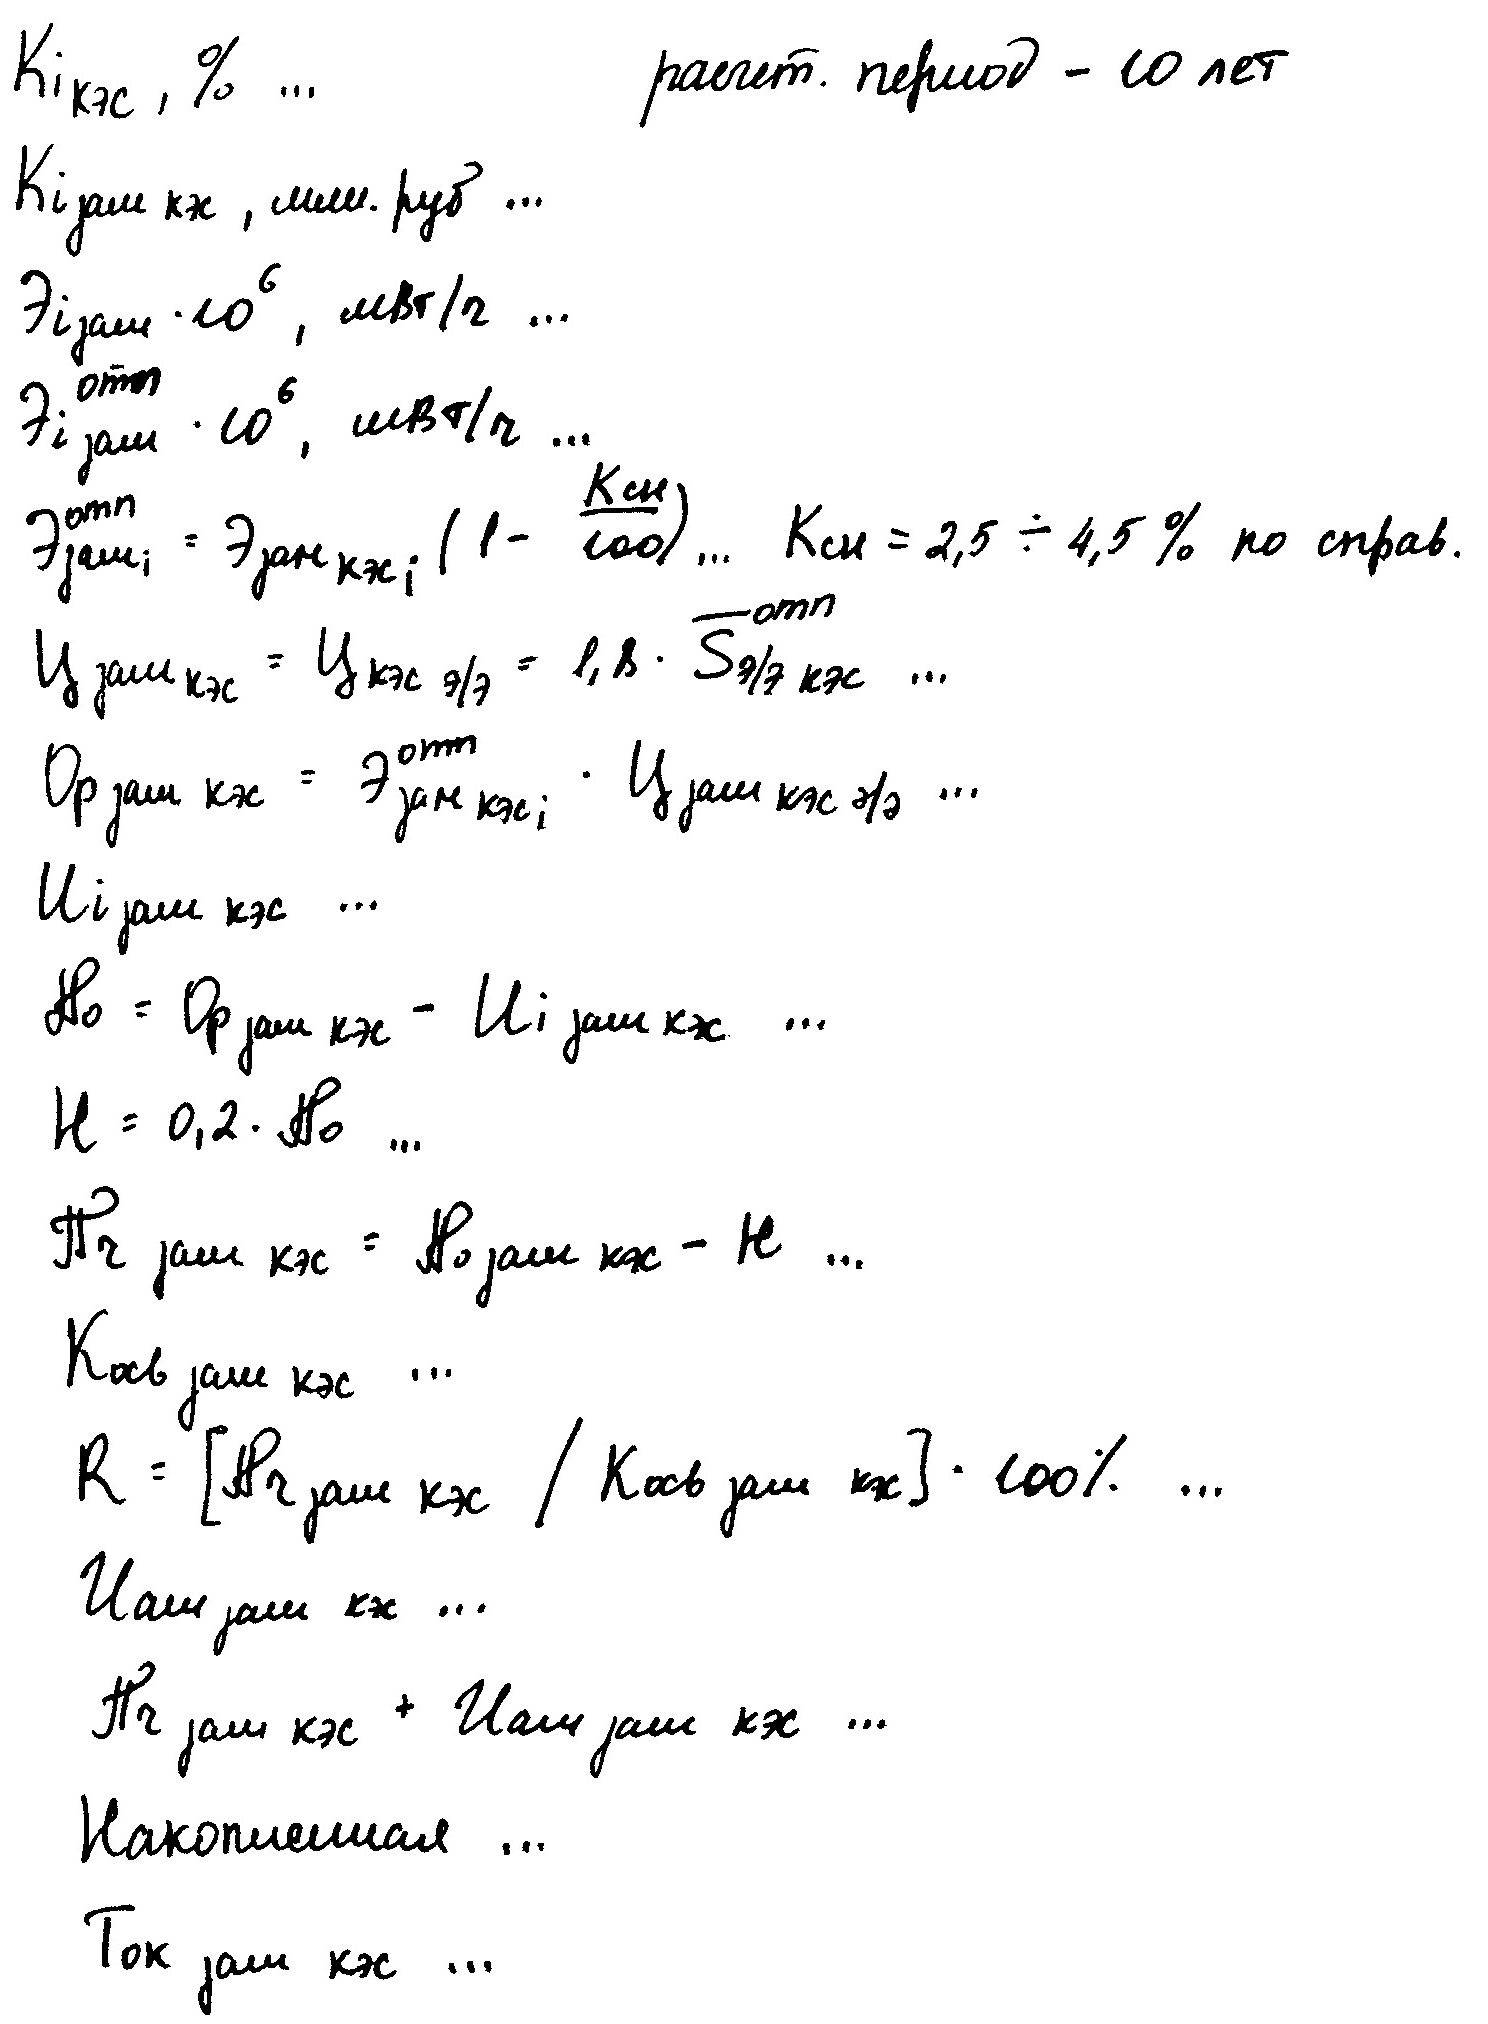 Кi кэс, % ... расчет. период - 10 лет
Кi зам кэс, млн. руб ...
Эi зам · 10⁶, мВт/ч ...
Эi зам отп · 10⁶, мВт/ч ...
Э зам i отп = Э зам кэс i (1 - Ксн/100) ... Ксн = 2,5 ÷ 4,5 % по справ.
Ц зам кэс = Ц кэс э/э = 1,8 · S̅ э/э кэс отп ...
Ор зам кэс = Э зам кэс i отп · Ц зам кэс э/э ...
Иi зам кэс ...
По = Ор зам кэс - Иi зам кэс ...
Н = 0,2 · По ...
Пч зам кэс = По зам кэс - Н ...
Косв зам кэс ...
R = [Пч зам кэс / Косв зам кэс] · 100% ...
Иам зам кэс ...
Пч зам кэс + Иам зам кэс ...
Накопленная ...
Ток зам кэс ...